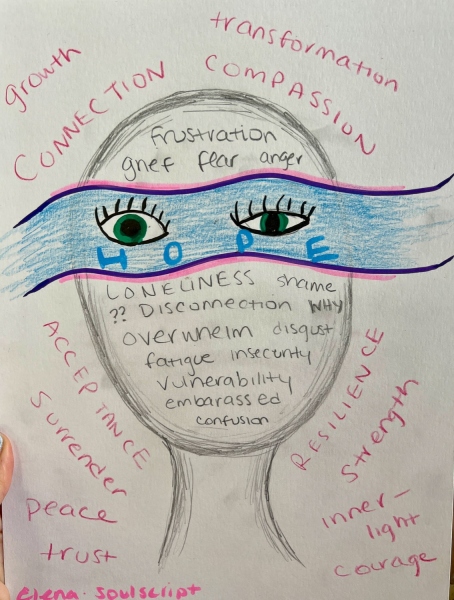 transformation
growth
CONNECTION
COMPASSION
frustration
grief fear anger
HOPE
LONELINESS shame
?? Disconnection WHY
overwhelm disgust
fatigue insecurity
vulnerability
embarassed
confusion
ACCEPTANCE
Surrender
peace
trust
RESILIENCE
Strength
inner-
light
courage
elena. soulscript